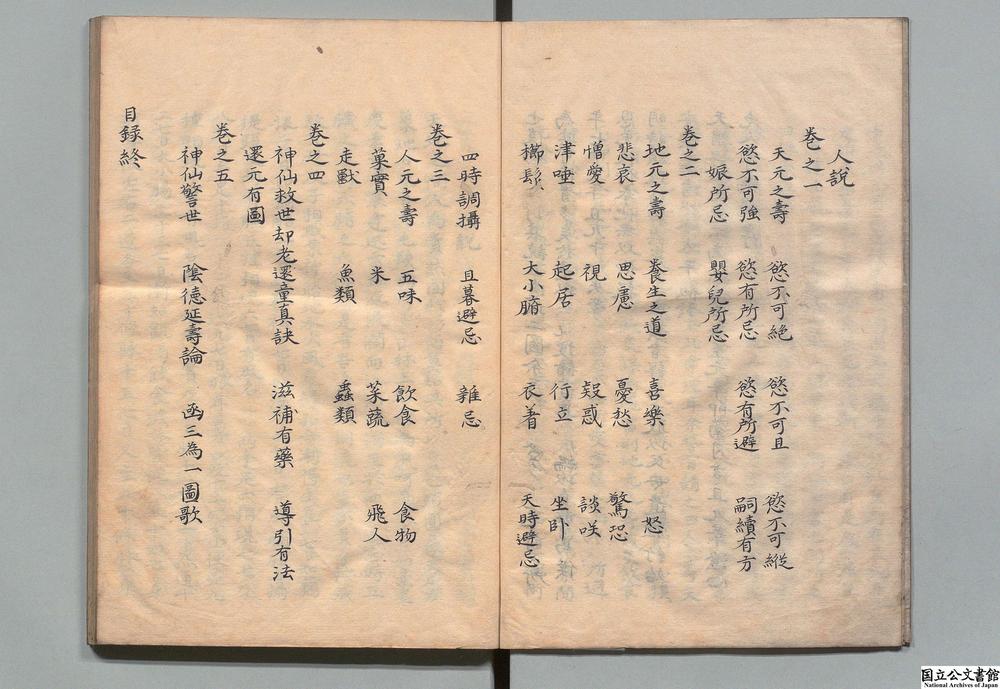 人説
巻之一
天元之壽 慾不可絶 慾不可且 慾不可縦
慾不可強 慾有所忌 慾有所避 嗣續有方
娠所忌 嬰兒所忌
巻之二
地元之壽 養生之道 喜樂 怒
悲哀 思慮 憂愁 驚恐
憎愛 視 疑惑 談咲
津唾 起居 行立 坐卧
櫛髮 大小腑 衣着 天時避忌
四時調攝 旦暮避忌 雜忌
巻之三
人元之壽 五味 飲食 食物
菓實 米 菜蔬 飛人
走獸 魚類 蟲類
巻之四
神仙救世却老還童真訣 滋補有藥 導引有法
還元有圖
巻之五
神仙警世 陰德延壽論 函三為一圖歌
目録終
国立公文書館
National Archives of Japan